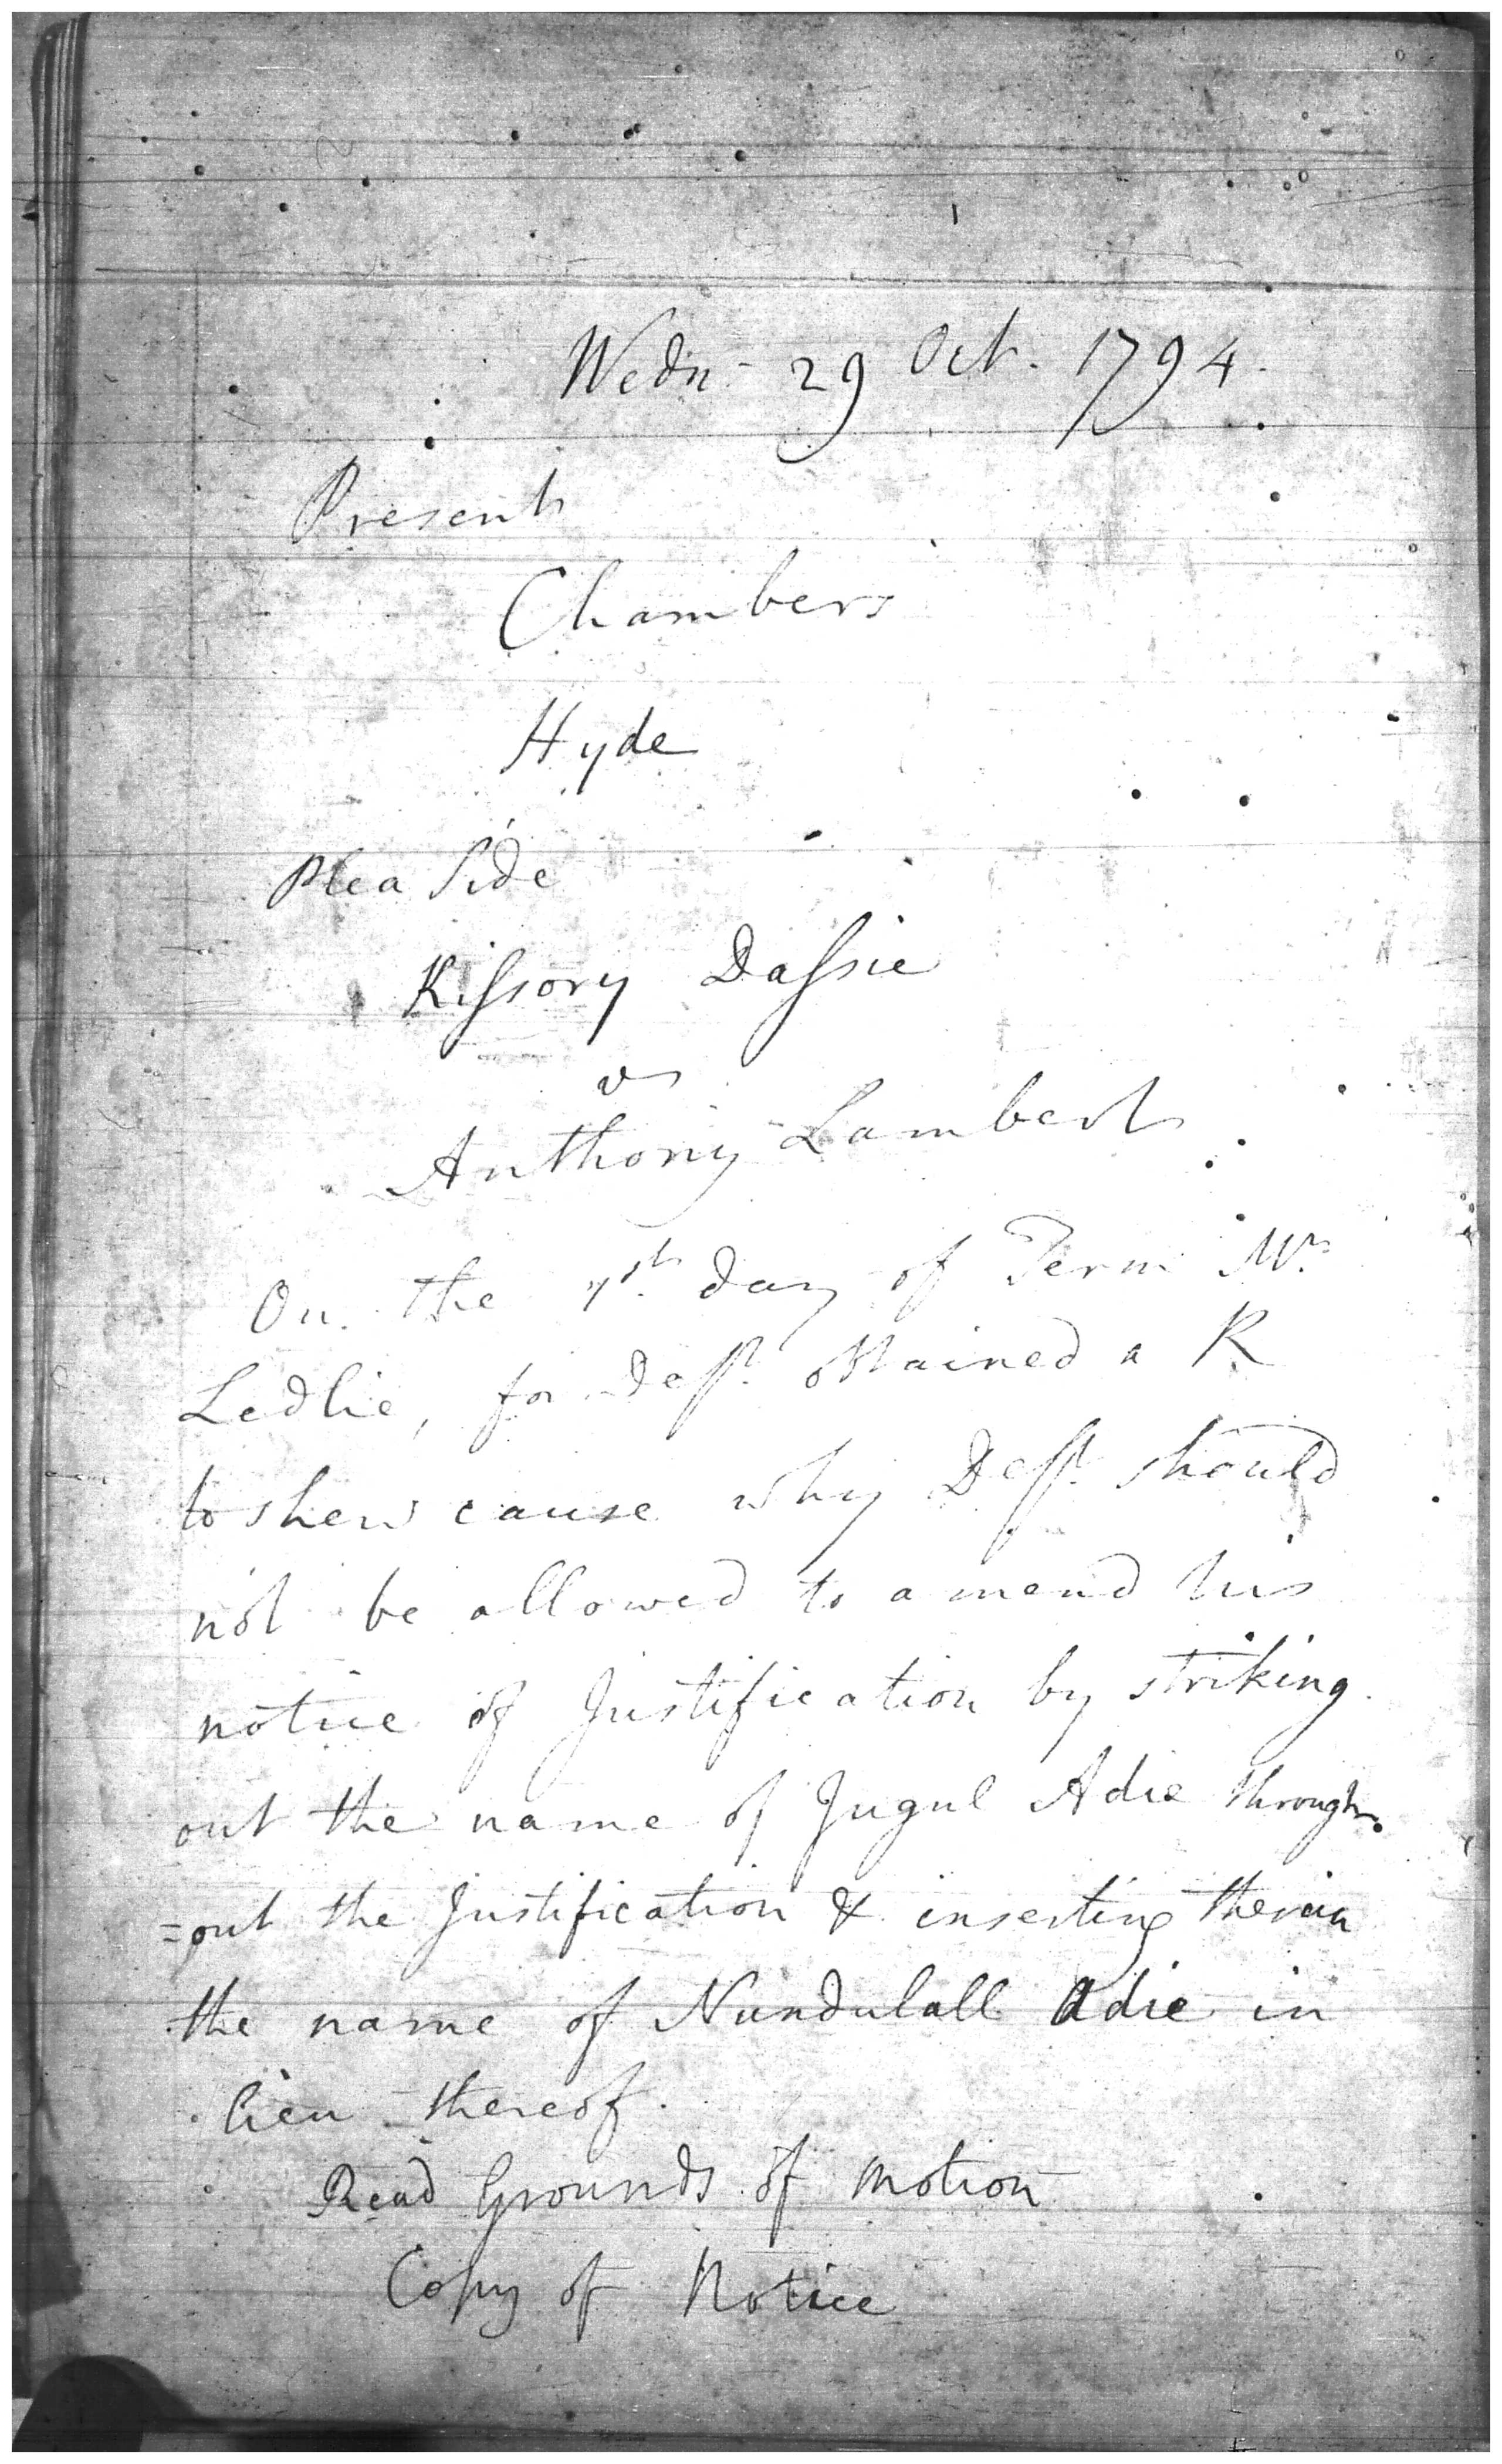 Wedn. 29 Oct. 1794.
Present
Chambers
Hyde
Plea Side
Kissory Dassie
vs
Anthony Lambert
On the day of Term Mr.
Ledlie, for Deft. obtained a R
to shew cause why Deft. should
not be allowed to amend his
notice of Justification by striking
out the name of Jugul Adie through
=out the Justification & inserting therein
the name of Nundulall Adie in
lieu thereof.
Read Grounds of Motion
Copy of Notice